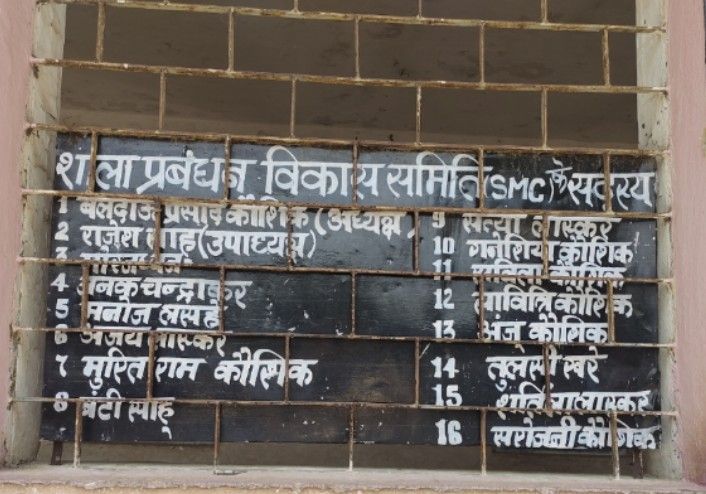 शाला प्रबंधन विकास समिति (SMC) के सदस्य
1 बलदाऊ प्रसाद कौशिक (अध्यक्ष)
2 राजेश साहू (उपाध्यक्ष)
3
4 जनक चन्द्राकर
5 मनोज
6 अजय भास्कर
7 मुरित राम कौशिक
8 बंटी साहू
9 सत्या भास्कर
10 गनेशिया कौशिक
11 सविता कौशिक
12 सावित्रि कौशिक
13 अंजू कौशिक
14 तुलेसी खरे
15
16 सरोजनी कौशिक